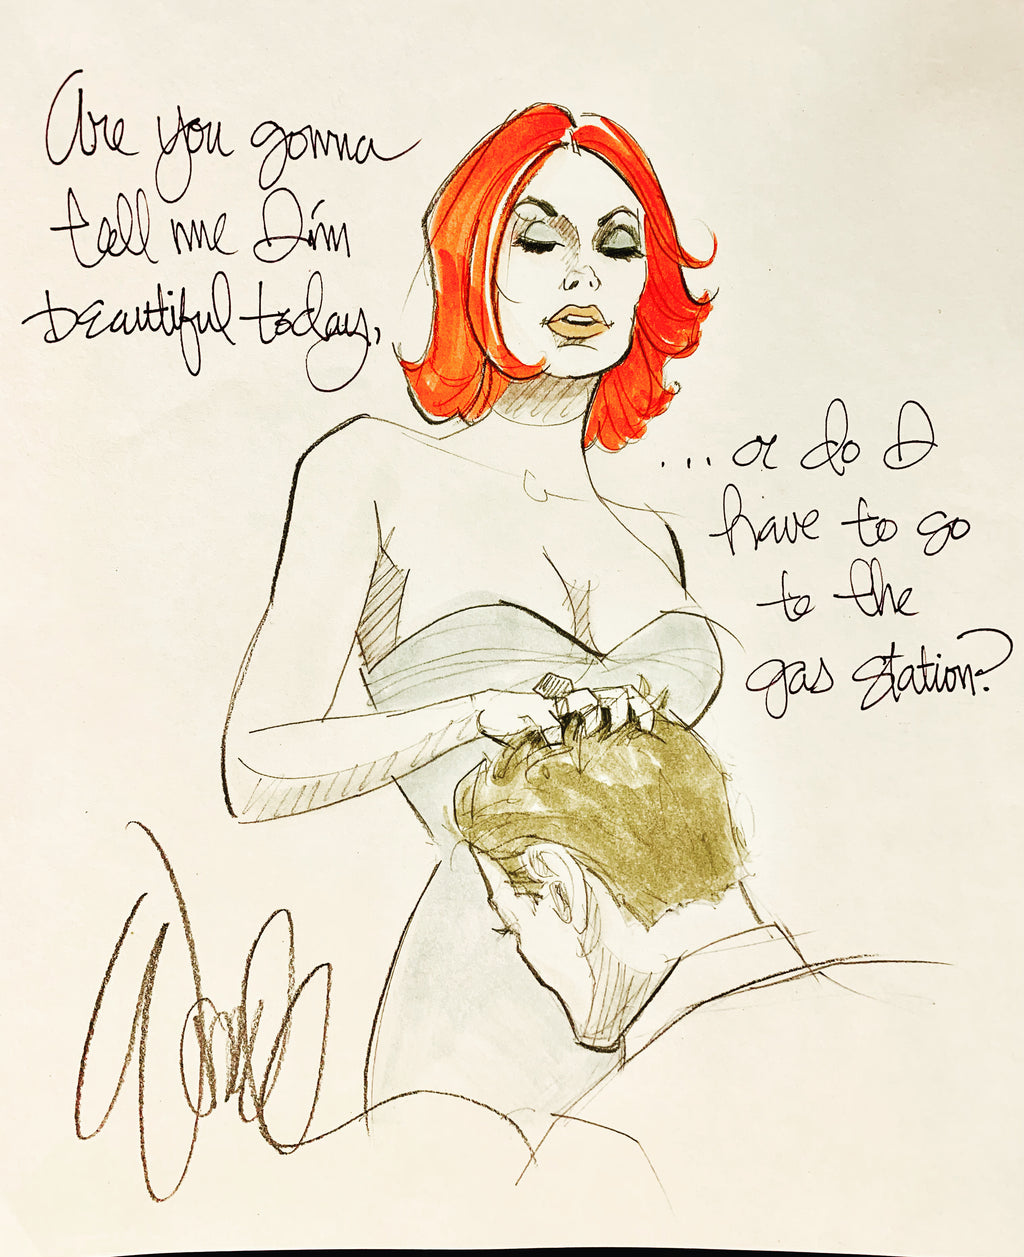 Are you gonna
tell me I'm
beautiful today,
...or do I
have to go
to the
gas station?